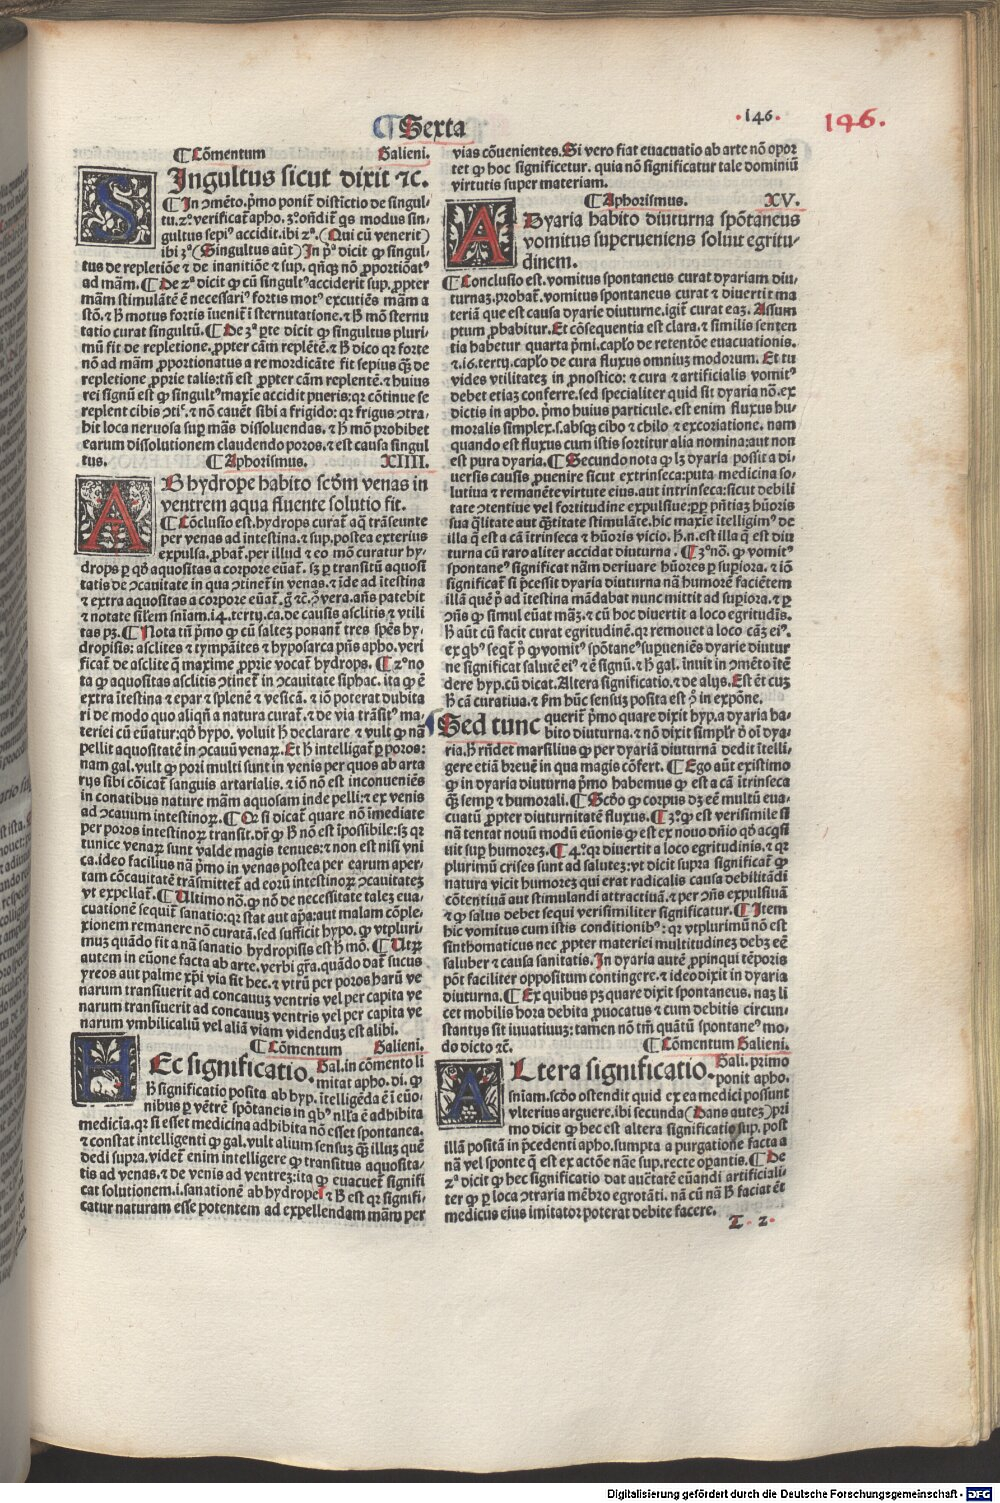 Sexta
.146.
146.
¶ Cõmentum Galieni.
SIngultus sicut dixit ⁊c.
¶ In ↄmẽto. p̃mo ponit distĩctio de singul-
tu. 2º verificat apho. 3º oñdit qs modus sin
gultus sepiꝰ accidit. ibi 2ª. (Qui cũ venerit)
ibi 3ª (Singultus aũt) In pª dicit ꝙ singul-
tus de repletiõe ⁊ de inanitiõe ⁊ sup.
ad mãm. ¶ De 2ª dicit ꝙ cũ singultꝰ acciderit sup. ꝓpter
mãm stimulãtẽ ẽ necessariꝰ fortis motꝰ excutiẽs mãm a
tatio curat singultũ. ¶ De 3ª ꝑte dicit ꝙ singultus pluri-
mũ fit de repletione. ꝓpter cãm replẽtẽ. ⁊ ħ dico qꝛ forte
nõ ad mãm ꝓportionatus a remordicãte fit sepius q̃ȝ de
repletione ꝓprie talis: tñ est ꝓpter cãm replentẽ. ⁊ huius
rei signũ est ꝙ singultꝰ maxie accidit pueris: qꝛ cõtinue se
replent cibis ⁊ nõ cauẽt sibi a frigido: qꝛ frigus ↄtra-
hit loca neruosa sup mãs dissoluendas. ⁊ ħ mõ prohibet
earum dissolutionem claudendo poros. ⁊ est causa singul
tus. ¶ Aphorismus. XIIII.
AB hydrope habito scðm venas in
ventrem aqua fluente solutio fit.
¶ Cõclusio est. hydrops curat̃ aq̃ trãseunte
per venas ad intestina. ⁊ sup. postea exterius
expulsa. ꝓbat̃. per illud ⁊ eo mõ curatur hy-
drops ꝑ qð aquositas a corpore eũat̃. sȝ ꝑ transitũ aquosi
tatis de ↄcauitate in qua ↄtinet̃ in venas. ⁊ ĩde ad ĩtestina
⁊ extra aquositas a corpore eũat̃. g̃ ⁊c̃. ↄ̃ vera. añs patebit
⁊ notate sil̃em sñiam. 14. tertij. ca. de causis asclitis ⁊ vtili
tas pȝ. ¶ Nota tñ p̃mo ꝙ cũ salteȝ ponant̃ tres spẽs hy-
dropisis: asclites ⁊ tympãites ⁊ hyposarca pñs apho. veri
ficat̃ de asclite q̃ maxime ꝓprie vocat̃ hydrops. ¶ 2º no
ta ꝙ aquositas asclitis ↄtinet̃ in ↄcauitate siphac. ita ꝙ ẽ
extra ĩtestina ⁊ epar ⁊ splenẽ ⁊ vesicã. ⁊ iõ poterat dubita
ri de modo quo aliqñ a natura curat̃. ⁊ de via trãsitꝰ ma-
teriei cũ eũatur: qð hypo. voluit ħ declarare ⁊ vult ꝙ nã
pellit aquositatẽ in ↄcauũ venaꝝ. Et ħ intelligat̃ ꝑ poros:
nam gal. vult ꝙ pori multi sunt in venis per quos ab arta
rijs sibi cõicat̃ sanguis artarialis. ⁊ iõ nõ est inconueniẽs
in conatibus nature mãm aquosam inde pelli: ⁊ ex venis
ad ↄcauum intestinoꝝ. ¶ Qꝛ si dicat̃ quare nõ ĩmediate
per poros intestinoꝝ transit. dr̃ ꝙ ħ nõ est ĩpossibile: sȝ qꝛ
tunice venarũ sunt valde magis tenues: ⁊ non est nisi vni
ca. ideo facilius nã p̃mo in venas postea per earum aper-
tam cõcauitatẽ trãsmittet̃ ad eorũ intestinoꝝ ↄcauitateȝ
vt expellat̃. ¶ Ultimo nõ. ꝙ nõ de necessitate taleȝ eua-
cuationẽ sequit̃ sanatio: qꝛ stat aut ap̃a: aut malam cõple-
xionem remanere nõ curatã. sed sufficit hypo. ꝙ vtpluri-
muȝ quãdo fit a nã sanatio hydropisis est ħ mõ. ¶ Utꝝ
autem in eũone facta ab arte. verbi gr̃a. quãdo dat̃ sucus
yreos aut palme xp̃i via fit hec. ⁊ vtrũ per poros harũ ve
narum transiuerit ad concauuȝ ventris vel per capita ve
narum transiuerit ad concauuȝ ventris vel per capita ve
narum vmbilicaliũ vel aliã viam videnduȝ est alibi.
¶ Cõmentum Galieni.
HEc significatio. Gal. in cõmento li
mitat apho. di. ꝙ
ħ significatio posita ab hyp. ĩtelligẽda ẽ ĩ eũo-
nibus ꝑ vẽtrẽ spõtaneis in qbꝰ nl̃la ẽ adhibita
medicia. qꝛ si esset medicina adhibita nõ esset spontanea.
⁊ constat intelligenti ꝙ gal. vult alium sensuȝ q̃ȝ illuȝ quẽ
dedi supra. videt̃ enim intelligere ꝙ transitus aquosita-
tis ad venas. ⁊ de venis ad ventreȝ: ita ꝙ euacuet̃ signifi
cat solutionem. i. sanationẽ ab hydrope ⁊ ħ est qꝛ signifi-
catur naturam esse potentem ad expellendam mãm per
vias cõuenientes. Si vero fiat euacuatio ab arte nõ opor
tet ꝙ hoc significetur. quia nõ significatur tale dominiũ
virtutis super materiam.
¶ Aphorismus. XV.
ADyaria habito diuturna spõtaneus
vomitus superueniens soluit egritu-
dinem.
¶ Conclusio est. vomitus spontaneus curat dyariam diu
turnaȝ. probat̃. vomitus spontaneus curat ⁊ diuertit ma
teriã que est causa dyarie diuturne. igit̃ curat eaȝ. Assum
ptum ꝓbabitur. Et cõsequentia est clara. ⁊ similis senten
tia habetur quarta p̃mi. cap̃lo de retentõe euacuationis.
⁊. 16. tertij. cap̃lo de cura fluxus omniuȝ modorum. Et tu
vides vtilitateȝ in ꝓnostico: ⁊ cura ⁊ artificialis vomitꝰ
debet etiaȝ conferre. sed specialiter quid sit dyaria nõ. ex
dictis in apho. p̃mo huius particule. est enim fluxus hu-
moralis simplex. s. absqȝ cibo ⁊ chilo ⁊ excoriatione. nam
quando est fluxus cum istis sortitur alia nomina: aut non
est pura dyaria. ¶ Secundo nota ꝙ lȝ dyaria possit a di-
uersis causis ꝓuenire sicut extrinseca: puta medicina so-
lutiua ⁊ remanẽte virtute eius. aut intrinseca: sicut debili
tate ↄtentiue vel fortitudine expulsiue: ꝓpꝛ pñtiaȝ hũoris
sua q̃litate aut q̃titate stimulãte. hic maxie ĩtelligimꝰ de
illa q̃ est a cã ĩtrinseca ⁊ hũoris vicio. ħ. n. est illa q̃ est diu
turna cũ raro aliter accidat diuturna. ¶ 3º nõ. ꝙ vomitꝰ
spontaneꝰ significat nãm deriuare hũores ꝑ supiora. ⁊ iõ
significat̃ si p̃cessit dyaria diuturna nã humorẽ faciẽtem
illã quẽ pꝰ ad ĩtestina mãdabat nunc mittit ad supiora. ⁊ ꝑ
ↄñs ꝙ simul eũat mãȝ. ⁊ cũ hoc diuertit a loco egritudĩs.
ħ aũt cũ facit curat egritudinẽ. qꝛ remouet a loco cãȝ eiꝰ.
ex qbꝰ seqt̃ pꝰ ꝙ vomitꝰ spõtaneꝰ supueniẽs dyarie diutur
ne significat salutẽ eiꝰ ⁊ ẽ signũ. ⁊ ħ gal. ĩnuit in ↄmẽto ĩtẽ
dere hyp. cũ dicat. Altera significatio. ⁊ de alijs. Est ẽt cuȝ
ħ cã curatiua. ⁊ fm hũc sensuȝ posita est ꝰ in expõne.
¶ Sed tunc querit̃ p̃mo quare dixit hyp. a dyaria ha-
bito diuturna. ⁊ nõ dixit simplr̃ ꝰ oĩ dya-
ria. ħ rñdet marsilius ꝙ per dyariã diuturnã dedit ĩtelli-
gere etiã breuẽ in qua magis cõfert. ¶ Ego aũt existimo
ꝙ in dyaria diuturna p̃mo habemus ꝙ est a cã ĩtrinseca
q̃ȝ semp̃ ⁊ humorali. ¶ Scðo ꝙ corpus dȝ eẽ multũ eua-
cuatũ ꝓpter diuturnitatẽ fluxus. ¶ 3º. ꝙ est verisimile si
nã tentat nouũ modũ eũonis ꝙ est ex nouo dñio qð acqsi
uit sup humoreȝ. ¶ 4º. qꝛ diuertit a loco egritudinis. ⁊ qꝛ
plurimũ crises sunt ad saluteȝ: vt dicit supra significat̃ ꝙ
natura vicit humoreȝ qui erat radicalis causa debilitãdi
cõtentiuã aut stimulandi attractiuã. ⁊ per ↄñs expulsiuã
⁊ ꝙ salus debet sequi verisimiliter significatur. ¶ Item
hic vomitus cum istis conditionibꝰ: qꝛ vtplurimũ nõ est
sinthomaticus nec ꝓpter materiei multitudineȝ debȝ eẽ
saluber ⁊ causa sanitatis. In dyaria autẽ ꝓpinqui tẽporis
põt faciliter oppositum contingere. ⁊ ideo dixit in dyaria
diuturna. ¶ Ex quibus pȝ quare dixit spontaneus. naȝ li
cet mobilis hora debita ꝓuocatus ⁊ cum debitis circun-
stantijs sit iuuatiuuȝ: tamen nõ tm̃ quãtũ spontaneꝰ mo-
do dicto ⁊c̃. ¶ Cõmentum Galieni.
ALtera significatio. Gali. primo
ponit apho.
sñiam. scðo ostendit quid ex ea medici possunt
vlterius arguere. ibi secunda (Dans auteȝ) pri
mo dicit ꝙ hec est altera significatio sup. post
illã positã in p̃cedenti apho. sumpta a purgatione facta a
nã vel sponte q̃ est ex actõe nãe sup. recte oꝑantis. ¶ De
2ª dicit ꝙ hec significatio dat auctẽtatẽ eũandi artificiali-
ter ꝙ ꝑ loca ↄtraria mẽbro egrotãti. nã cũ nã ħ faciat ẽt
medicus eius imitator poterat debite facere.
T. 2.
Digitalisierung gefördert durch die Deutsche Forschungsgemeinschaft - DFG